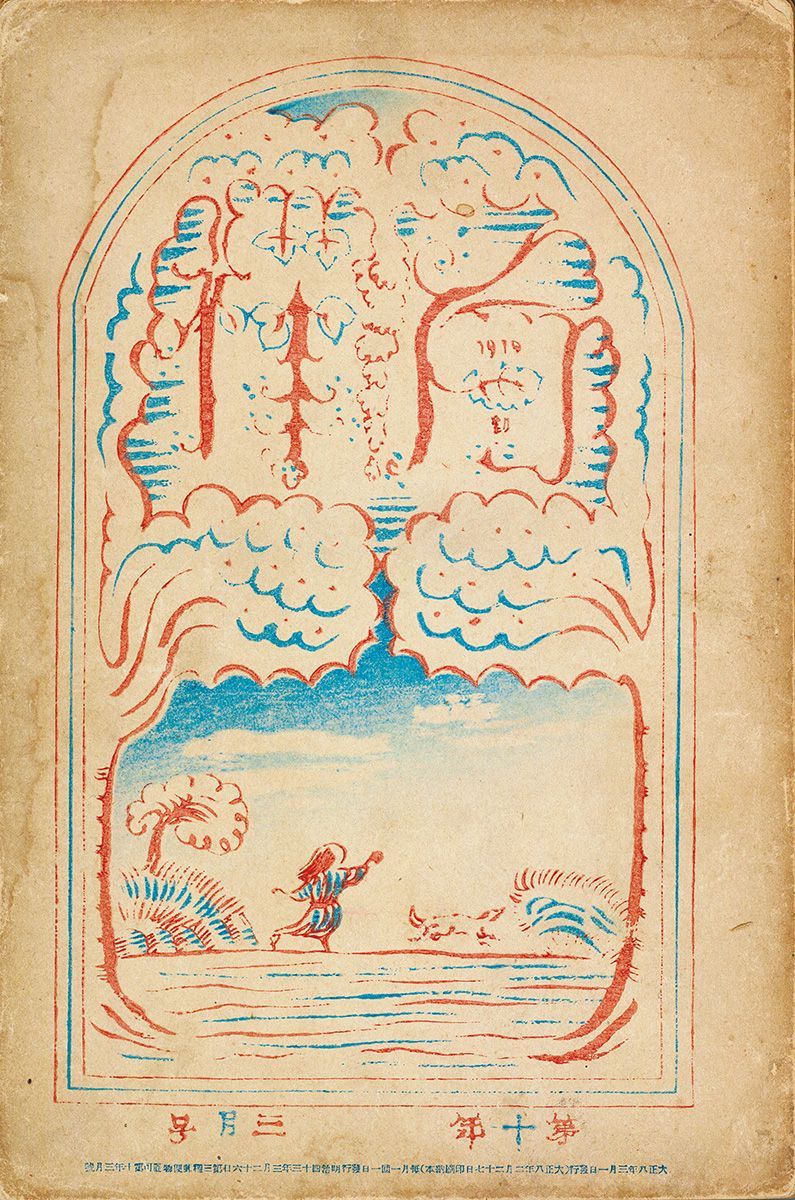 白樺
1919
劉
第十年 三月号
大正八年三月一日發行(大正八年二月二十七日印刷納本)每月一回一日發行明治四十三年三月二十六日第三種郵便物認可第十年三月號